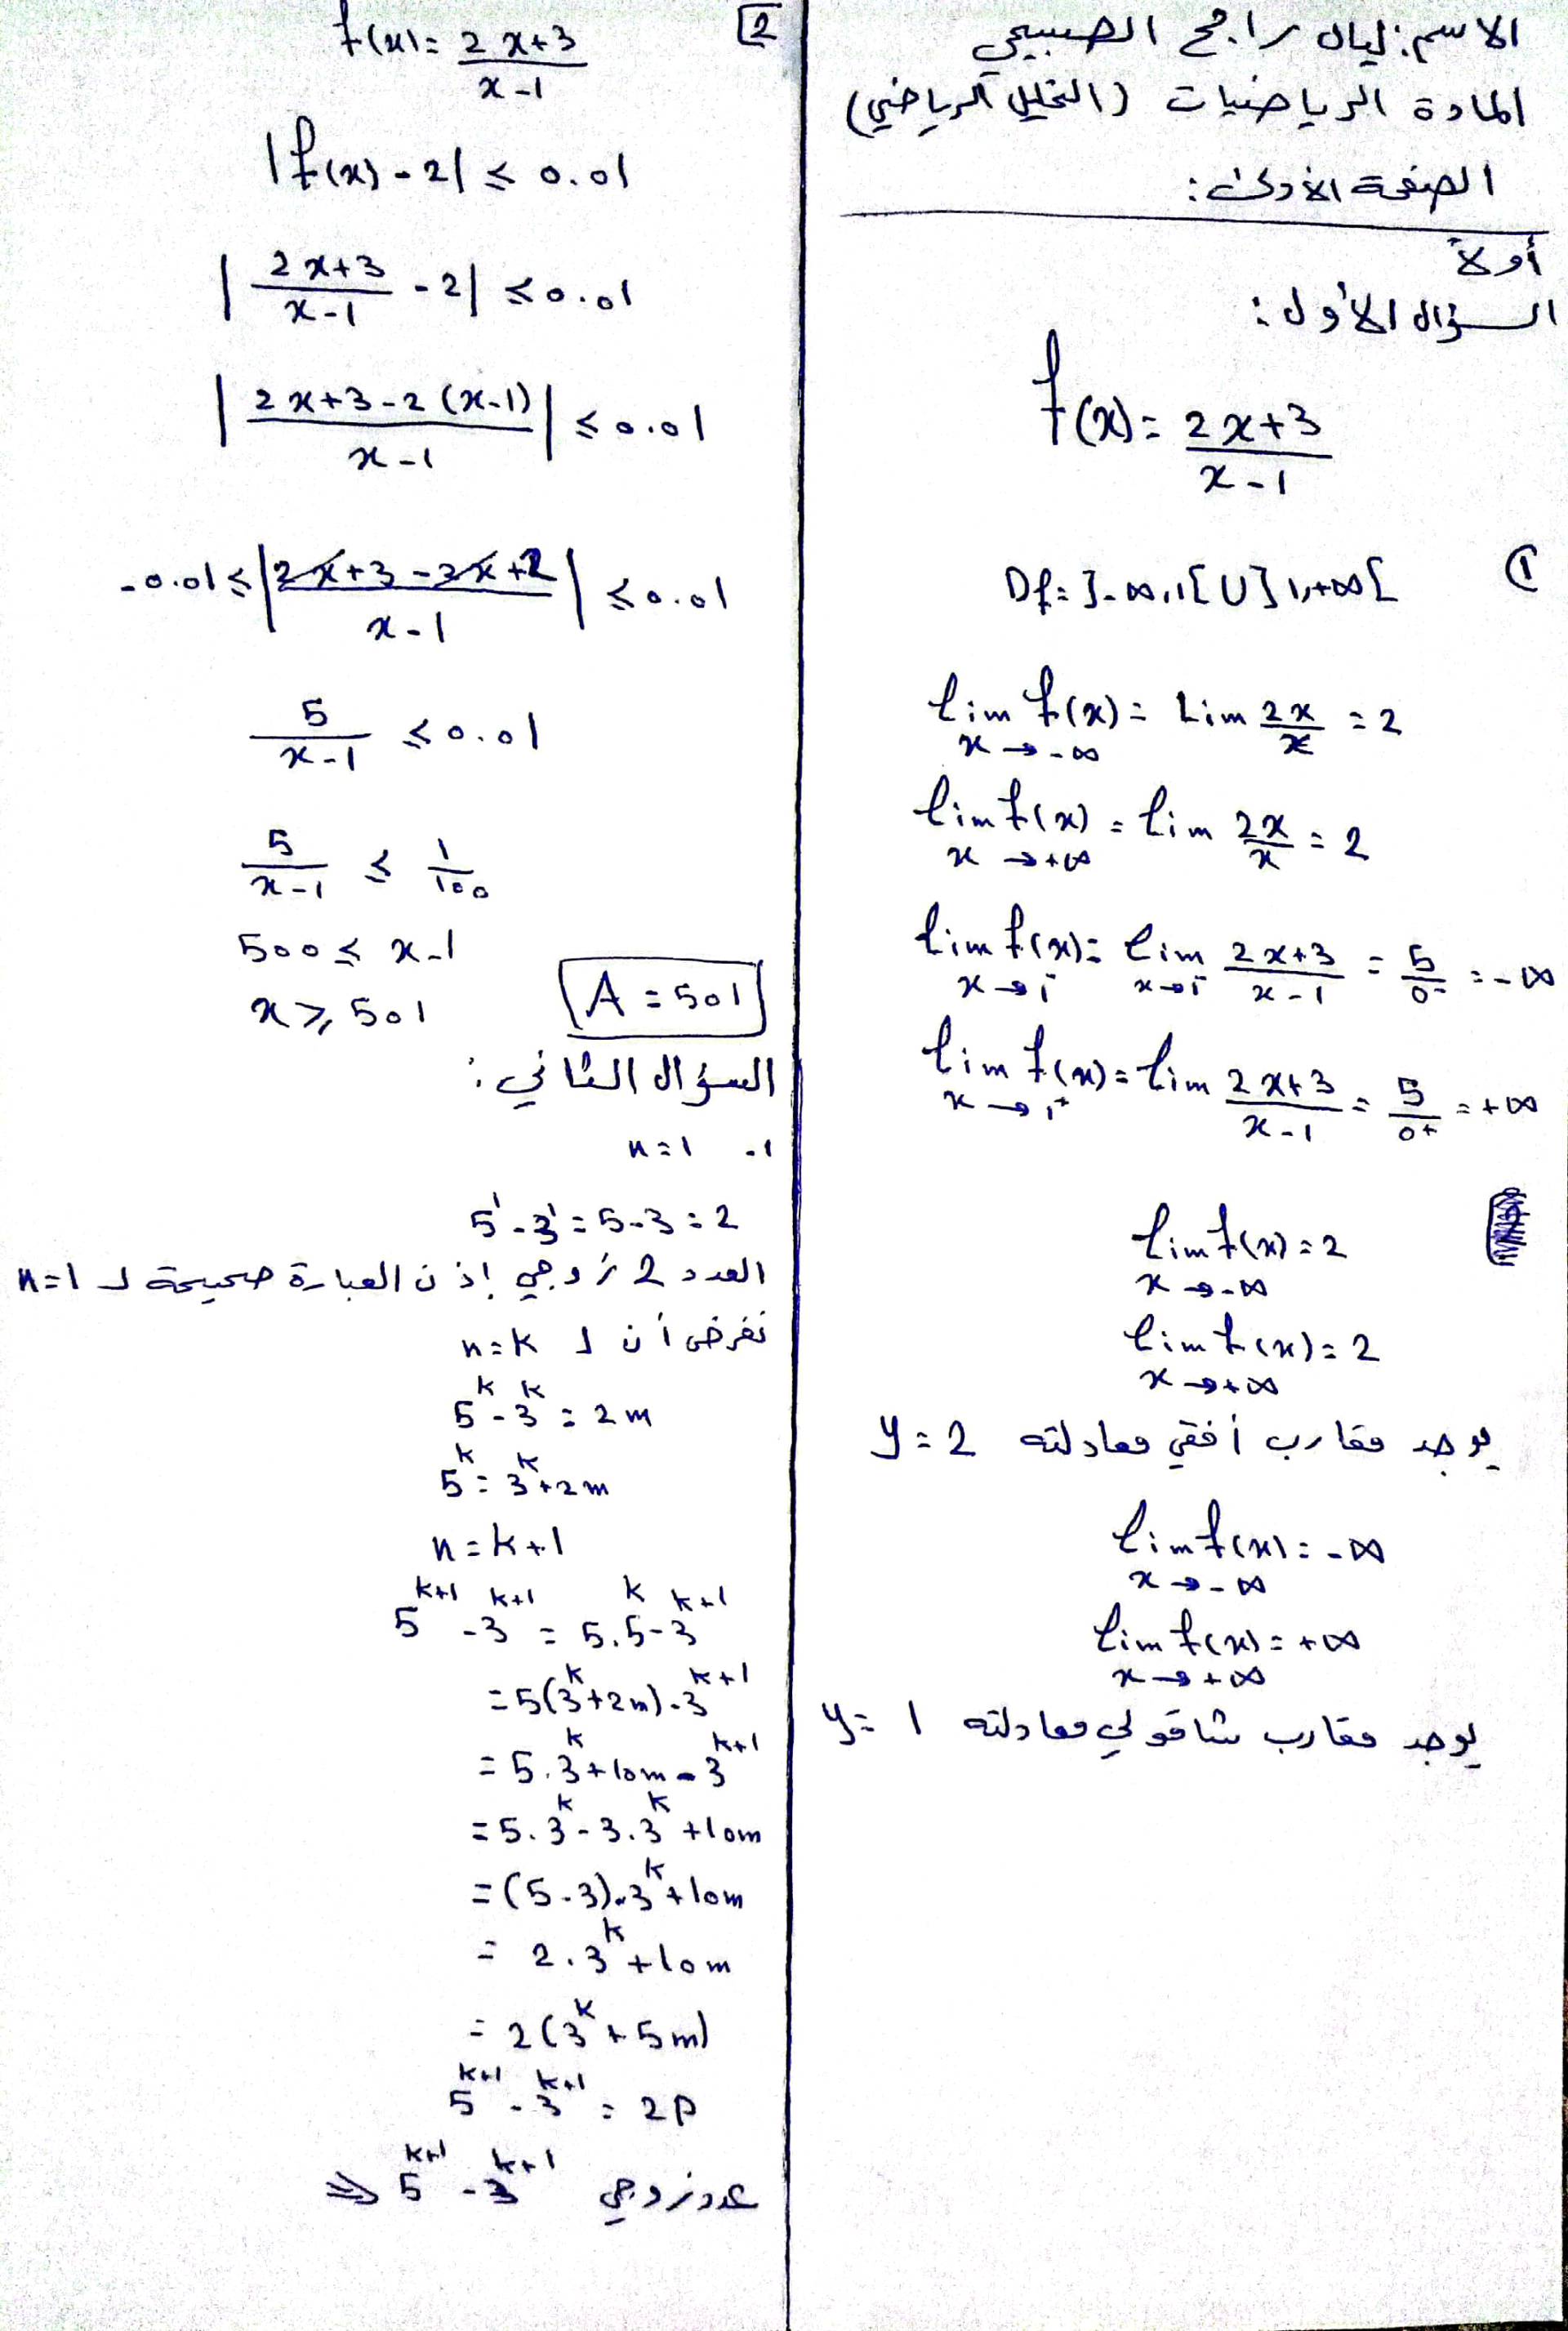 الاسم: ليال رابح الصبيحي
المادة الرياضيات (التحليل الرياضي)
الصفحة الأولى:
أولاً
السؤال الأول:
f(x) = (2x+3)/(x-1)
①
Df = ]-∞,1[ U ]1,+∞[
lim f(x) = Lim 2x/x = 2
x → -∞
lim f(x) = lim 2x/x = 2
x → +∞
lim f(x) = lim (2x+3)/(x-1) = 5/0- = -∞
x → 1- x → 1-
lim f(x) = lim (2x+3)/(x-1) = 5/0+ = +∞
x → 1+
lim f(x) = 2
x → -∞
lim f(x) = 2
x → +∞
يوجد مقارب أفقي معادلته y = 2
lim f(x) = -∞
x → -∞
lim f(x) = +∞
x → +∞
يوجد مقارب شاقولي معادلته y = 1
2
f(x) = (2x+3)/(x-1)
|f(x) - 2| ≤ 0.01
|(2x+3)/(x-1) - 2| ≤ 0.01
|(2x+3-2(x-1))/(x-1)| ≤ 0.01
-0.01 ≤ |(2x+3-2x+2)/(x-1)| ≤ 0.01
5/(x-1) ≤ 0.01
5/(x-1) ≤ 1/100
500 ≤ x-1
x ≥ 501 A = 501
السؤال الثاني:
1- n = 1
5^1 - 3^1 = 5-3 = 2
العدد 2 زوجي إذن العبارة صحيحة لـ n=1
نفرض أن لـ n=k
5^k - 3^k = 2m
5^k = 3^k + 2m
n = k+1
5^(k+1) - 3^(k+1) = 5.5^k - 3^(k+1)
= 5(3^k + 2m) - 3^(k+1)
= 5.3^k + 10m - 3^(k+1)
= 5.3^k - 3.3^k + 10m
= (5-3).3^k + 10m
= 2.3^k + 10m
= 2(3^k + 5m)
5^(k+1) - 3^(k+1) = 2p
⇒ 5^(k+1) - 3^(k+1) عدد زوجي